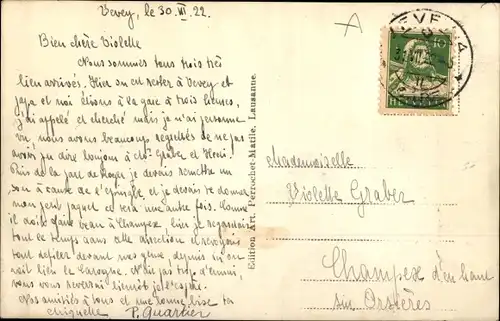 Vevey, le 30.VI.22.
Bien chère Violette
Nous sommes tous trois très
bien arrivés. Hier on est resté à Vevey et
papa et moi étions à la gare à trois heures,
j'ai appelé et cherché mais je n'ai personne
vu nous avons beaucoup regrettés de ne pas
avoir pu dire bonjour à Mme Graber et
de la part de Roger je devais remettre un
à cause de l'épingle et je devais te donner
mon petit paquet et sera une autre fois. Comme
il doit faire beau à Champex
tout le temps dans cette direction et
tout défiler devant mes yeux depuis
N'aie pas trop d'ennui,
vous vous reverrai bientôt
Nos amitiés à tous et une bonne bise ta
P. Quartier
Edition Art. Perrochet-Matile, Lausanne.
VEVEY
10
HELVETIA
Mademoiselle
Violette Graber
Champex d'en haut
sur Orsières